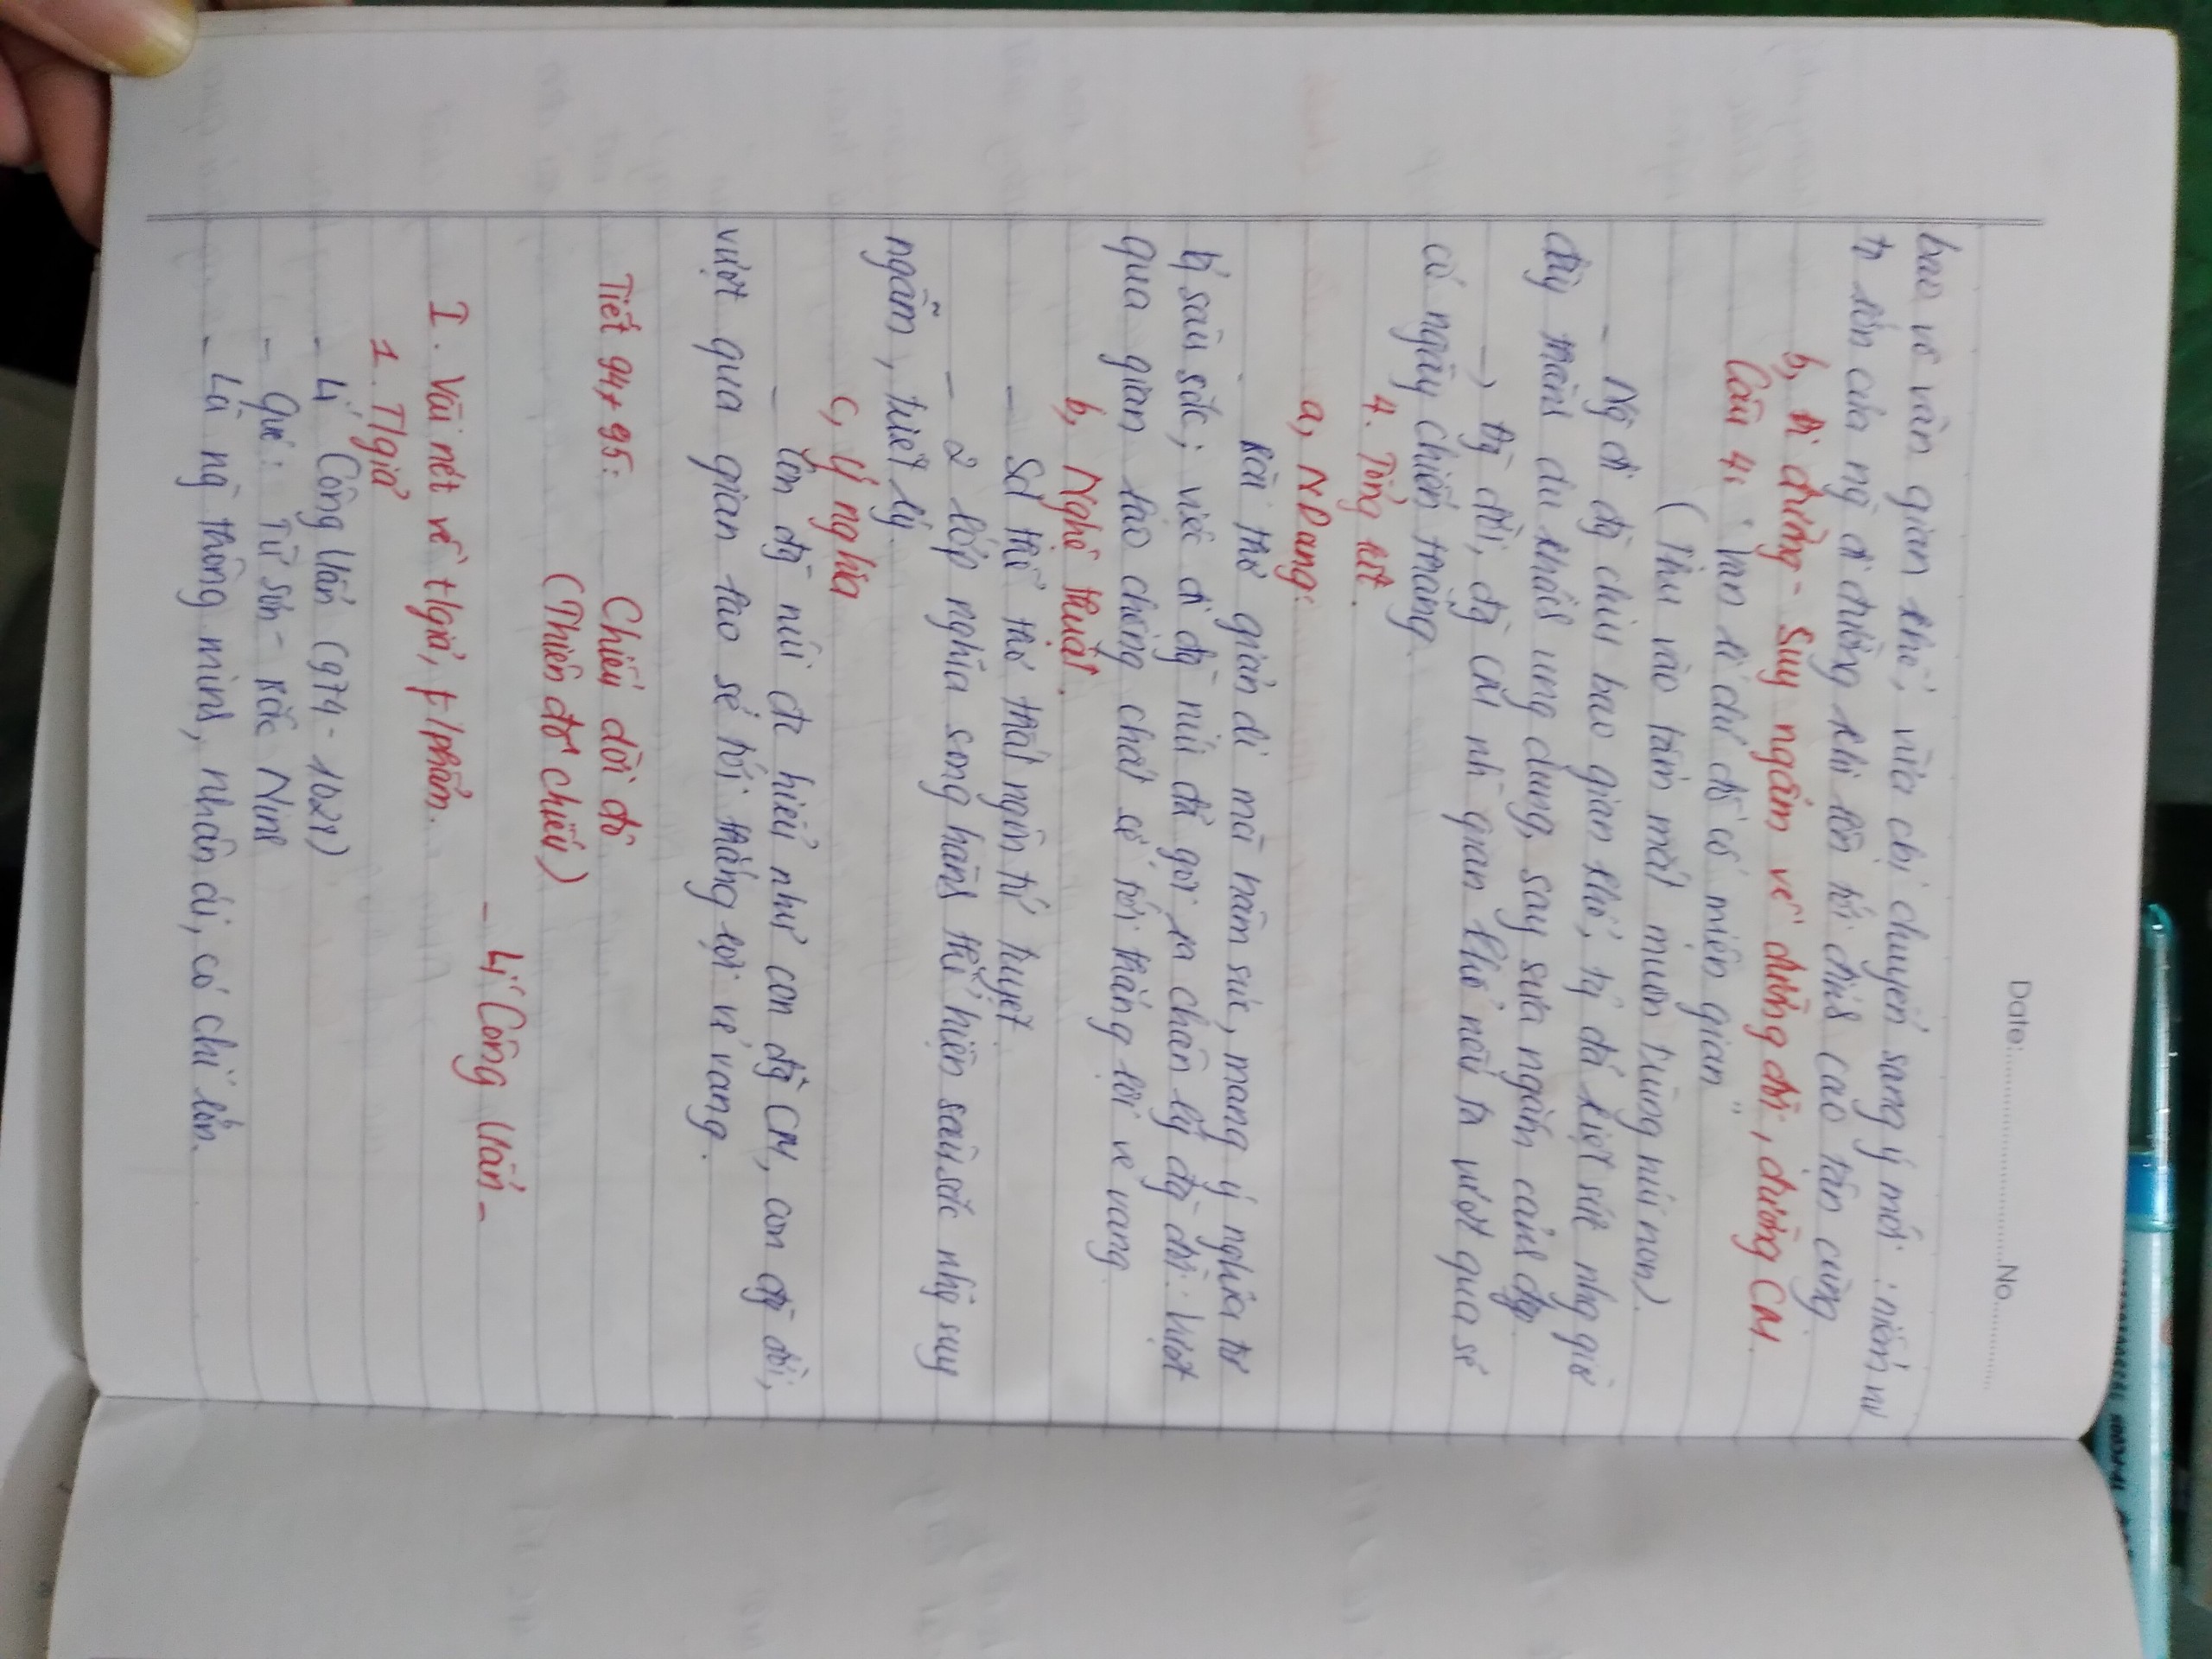 Date: No
bao vô vàn gian khổ, vừa chị chuyển sang ý mới : niềm vu
to lớn của ng đi đường khi lên tới đỉnh cao tận cùng.
b, Đi đường - Suy ngẫm về đường đời, đường CM.
Câu 4: "Vạn lí dư đồ cố miện gian"
(Thu vào tầm mắt muôn trùng núi non).
- Ng đi đg chịu bao gian khổ, tg đã kiệt sức nhg giờ
đây thành du khách ung dung, say sưa ngắm cảnh đẹp.
→ Đg đời, đg CM nh gian khổ nếu ta vượt qua sẽ
có ngày chiến thắng.
4. Tổng kết.
a, NDang:
Bài thơ giản dị mà hàm súc, mang ý nghĩa tư
tg sâu sắc; việc đi đg núi đã gợi ra chân lý đg đời: Vượt
qua gian lao chồng chất sẽ tới thắng lợi vẻ vang.
b, Nghệ thuật.
- Sd thể thơ thất ngôn tứ tuyệt.
- 2 lớp nghĩa song hành thể hiện sâu sắc nhg suy
ngẫm, triết lý.
c, Ý nghĩa
- Con đg núi đc hiểu như con đg CM, con đg đời,
vượt qua gian lao sẽ tới thắng lợi vẻ vang.
Tiết 94+95: Chiếu dời đô
(Thiên đô chiếu)
- Lí Công Uẩn -
I. Vài nét về t/giả, t/phẩm.
1. T/giả
- Lí Công Uẩn (974 - 1028)
- Quê: Từ Sơn - Bắc Ninh
- Là ng thông minh, nhân ái, có chí lớn.